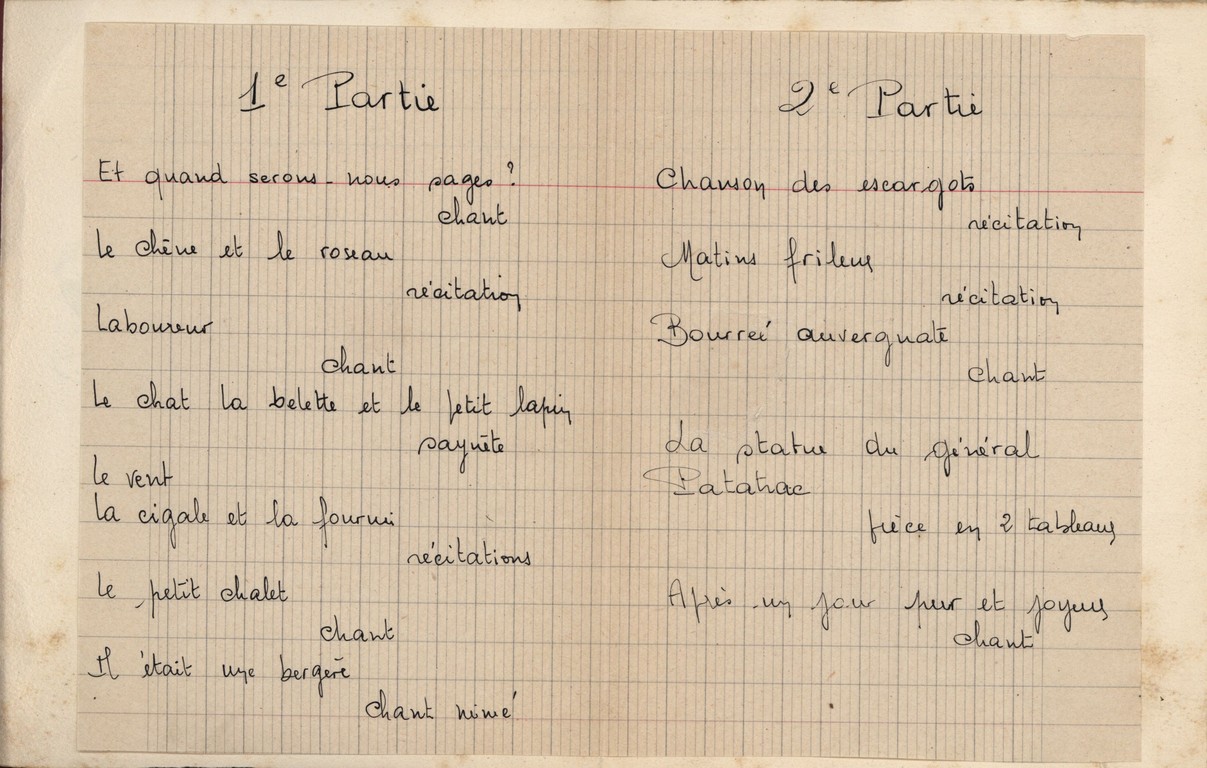 1e Partie
Et quand serons-nous sages ?
chant
Le chêne et le roseau
récitation
Laboureur
chant
Le chat la belette et le petit lapin
saynète
Le vent
La cigale et la fourmi
récitations
Le petit chalet
chant
Il était une bergère
chant mimé
2e Partie
Chanson des escargots
récitation
Matins frileux
récitation
Bourreé auvergnate
chant
La statue du général
Patatrac
pièce en 2 tableaux
Après un jour pur et joyeux
chant